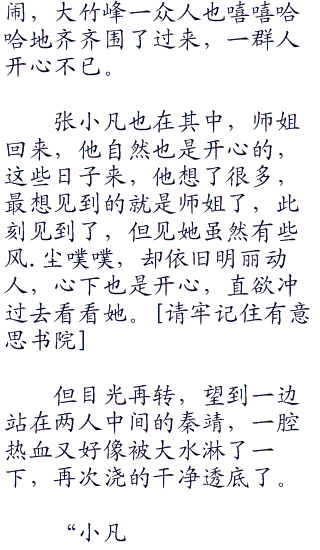 闹，大竹峰一众人也嘻嘻哈
哈地齐齐围了过来，一群人
开心不已。
张小凡也在其中，师姐
回来，他自然也是开心的，
这些日子来，他想了很多，
最想见到的就是师姐了，此
刻见到了，但见她虽然有些
风.尘噗噗，却依旧明丽动
人，心下也是开心，直欲冲
过去看看她。[请牢记住有意
思书院]
但目光再转，望到一边
站在两人中间的秦靖，一腔
热血又好像被大水淋了一
下，再次浇的干净透底了。
“小凡